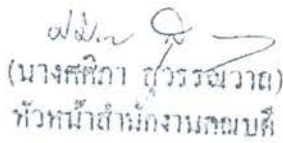 (นางศศิภา สุวรรณวาล)
หัวหน้าสำนักงานคณบดี